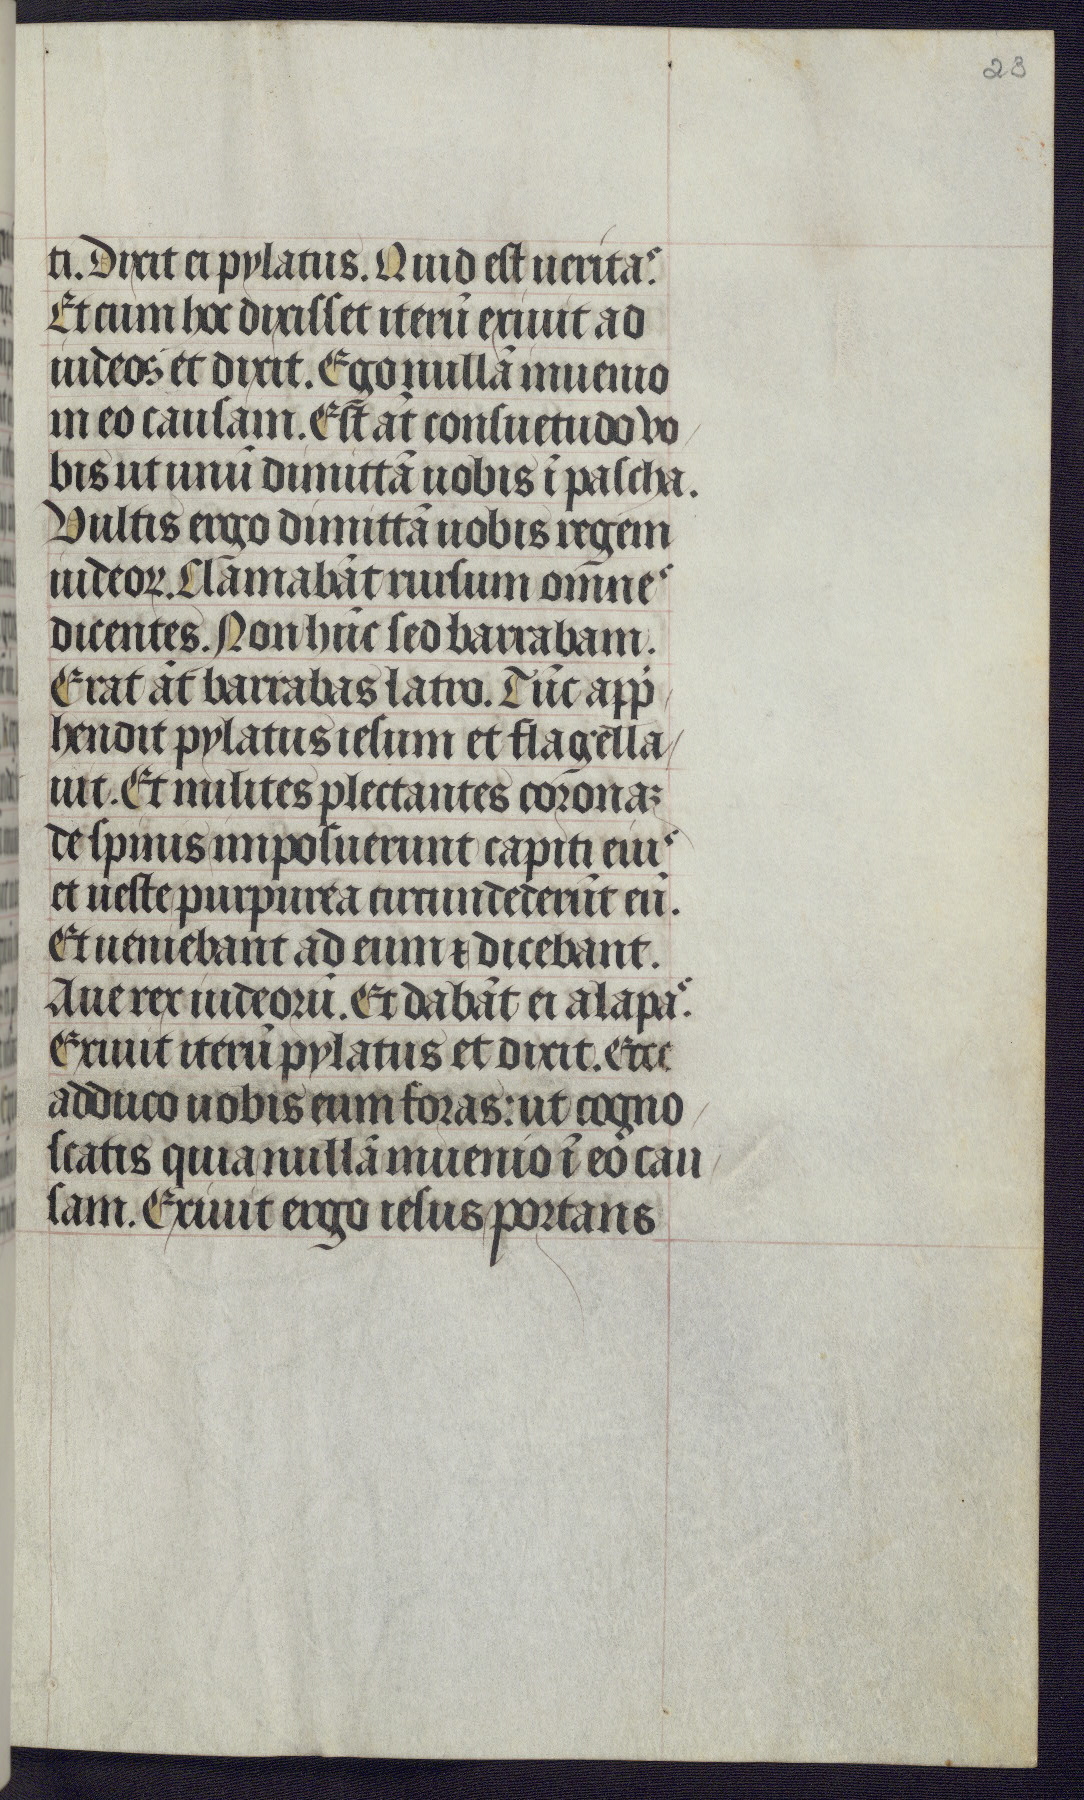 23
ti. Dixit ei pylatus. Quid est ueritas.
Et cum hoc dixisset iterū exiuit ad
iudeos et dixit. Ego nullā inuenio
in eo causam. Est āt consuetudo vo/
bis ut unū dimittā uobis ī pascha.
Vultis ergo dimittā uobis regem
iudeoꝝ. Clāmabāt rursum om̄nes
dicentes. Non hūc sed barrabam.
Erat āt barrabas latro. Tūc app̄/
hendit pylatus iesum et flagella//
uit. Et milites plectantes coronaꝫ
de spinis imposuerunt capiti eius
et ueste purpurea circundederūt eū.
Et ueniebant ad eum ⁊ dicebant.
Aue rex iudeorū. Et dabāt ei alapas.
Exiuit iterū pylatus et dixit. Ecce
adduco uobis eum foras: ut cogno/
scatis quia nullā inuenio ī eo cau/
sam. Exiuit ergo iesus portans